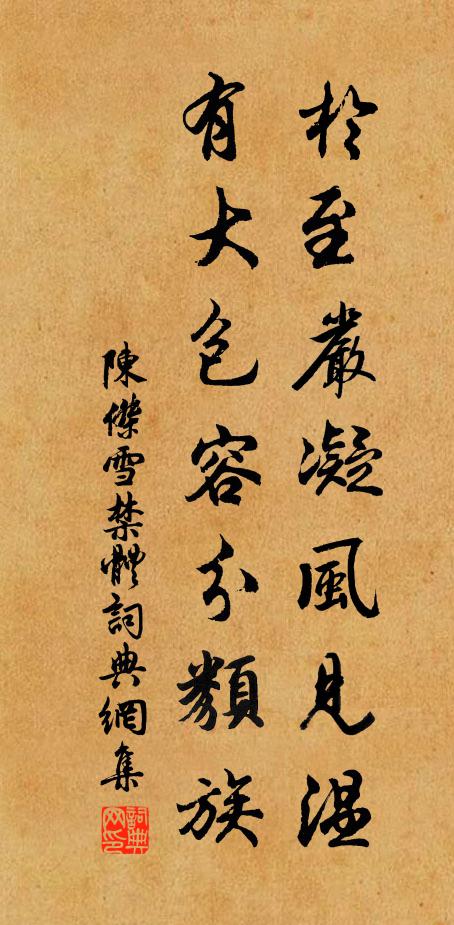 於至嚴凝風見温
有大包容分類族
陳傑雪禁體詞典網集
詞典
网印